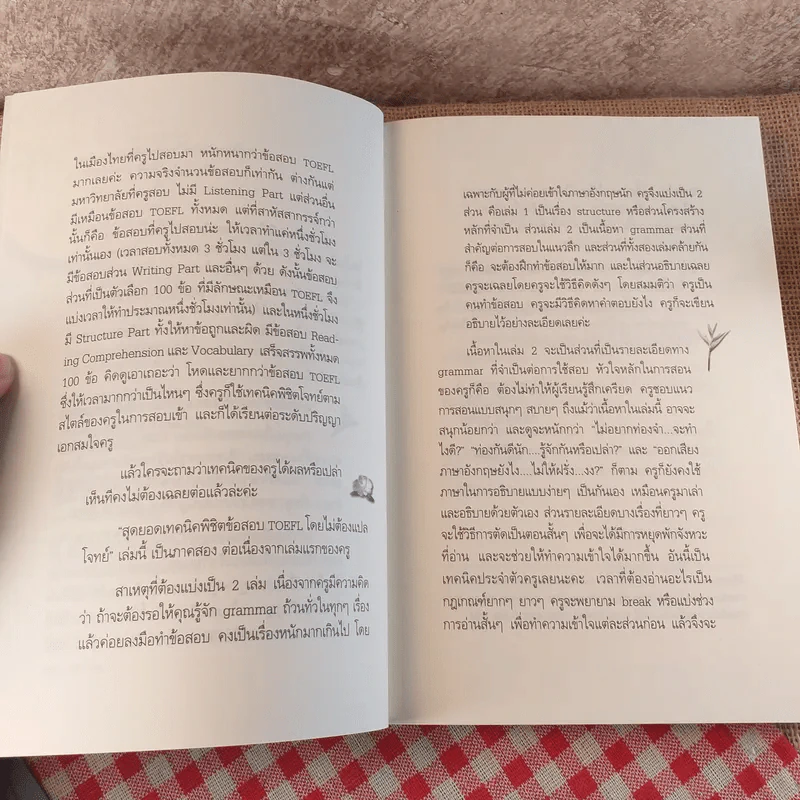 ในเมืองไทยที่ครูไปสอบมา หนักหนากว่าข้อสอบ TOEFL
มากเลยค่ะ ความจริงจำนวนข้อสอบก็เท่ากัน ต่างกันแต่
มหาวิทยาลัยที่ครูสอบ ไม่มี Listening Part แต่ส่วนอื่น
มีเหมือนข้อสอบ TOEFL ทั้งหมด แต่ที่สาหัสสากรรจ์กว่า
นั้นก็คือ ข้อสอบที่ครูไปสอบน่ะ ให้เวลาทำแค่หนึ่งชั่วโมง
เท่านั้นเอง (เวลาสอบทั้งหมด 3 ชั่วโมง แต่ใน 3 ชั่วโมง จะ
มีข้อสอบส่วน Writing Part และอื่นๆ ด้วย ดังนั้นข้อสอบ
ส่วนที่เป็นตัวเลือก 100 ข้อ ที่มีลักษณะเหมือน TOEFL จึง
แบ่งเวลาให้ทำประมาณหนึ่งชั่วโมงเท่านั้น) และในหนึ่งชั่วโมง
มี Structure Part ทั้งให้หาข้อถูกและผิด มีข้อสอบ Read-
ing Comprehension และ Vocabulary เสร็จสรรพทั้งหมด
100 ข้อ คิดดูเอาเถอะว่า โหดและยากกว่าข้อสอบ TOEFL
ซึ่งให้เวลามากกว่าเป็นไหนๆ ซึ่งครูก็ใช้เทคนิคพิชิตโจทย์ตาม
สไตล์ของครูในการสอบเข้า และก็ได้เรียนต่อระดับปริญญา
เอกสมใจครู
แล้วใครจะถามว่าเทคนิคของครูได้ผลหรือเปล่า
เห็นทีคงไม่ต้องเฉลยต่อแล้วล่ะค่ะ
“สุดยอดเทคนิคพิชิตข้อสอบ TOEFL โดยไม่ต้องแปล
โจทย์” เล่มนี้ เป็นภาคสอง ต่อเนื่องจากเล่มแรกของครู
สาเหตุที่ต้องแบ่งเป็น 2 เล่ม เนื่องจากครูมีความคิด
ว่า ถ้าจะต้องรอให้คุณรู้จัก grammar ถ้วนทั่วในทุกๆ เรื่อง
แล้วค่อยลงมือทำข้อสอบ คงเป็นเรื่องหนักมากเกินไป โดย
เฉพาะกับผู้ที่ไม่ค่อยเข้าใจภาษาอังกฤษนัก ครูจึงแบ่งเป็น 2
ส่วน คือเล่ม 1 เป็นเรื่อง structure หรือส่วนโครงสร้าง
หลักที่จำเป็น ส่วนเล่ม 2 เป็นเนื้อหา grammar ส่วนที่
สำคัญต่อการสอบในแนวลึก และส่วนที่ทั้งสองเล่มคล้ายกัน
ก็คือ จะต้องฝึกทำข้อสอบให้มาก และในส่วนอธิบายเฉลย
ครูจะเฉลยโดยครูจะใช้วิธีคิดดังๆ โดยสมมติว่า ครูเป็น
คนทำข้อสอบ ครูจะมีวิธีคิดหาคำตอบยังไง ครูก็จะเขียน
อธิบายไว้อย่างละเอียดเลยค่ะ
เนื้อหาในเล่ม 2 จะเป็นส่วนที่เป็นรายละเอียดทาง
grammar ที่จำเป็นต่อการใช้สอบ หัวใจหลักในการสอน
ของครูก็คือ ต้องไม่ทำให้ผู้เรียนรู้สึกเครียด ครูชอบแนว
การสอนแบบสนุกๆ สบายๆ ถึงแม้ว่าเนื้อหาในเล่มนี้ อาจจะ
สนุกน้อยกว่า และดูจะหนักกว่า “ไม่อยากท่องจำ...จะทำ
ไงดี?” “ท่องกันดีนัก....รู้จักกันหรือเปล่า?” และ “ออกเสียง
ภาษาอังกฤษยังไง....ไม่ให้ฝรั่ง...งง?” ก็ตาม ครูก็ยังคงใช้
ภาษาในการอธิบายแบบง่ายๆ เป็นกันเอง เหมือนครูมาเล่า
และอธิบายด้วยตัวเอง ส่วนรายละเอียดบางเรื่องที่ยาวๆ ครู
จะใช้วิธีการตัดเป็นตอนสั้นๆ เพื่อจะได้มีการหยุดพักจังหวะ
ที่อ่าน และจะช่วยให้ทำความเข้าใจได้มากขึ้น อันนี้เป็น
เทคนิคประจำตัวครูเลยนะคะ เวลาที่ต้องอ่านอะไรเป็น
กฎเกณฑ์ยากๆ ยาวๆ ครูจะพยายาม break หรือแบ่งช่วง
การอ่านสั้นๆ เพื่อทำความเข้าใจแต่ละส่วนก่อน แล้วจึงจะ